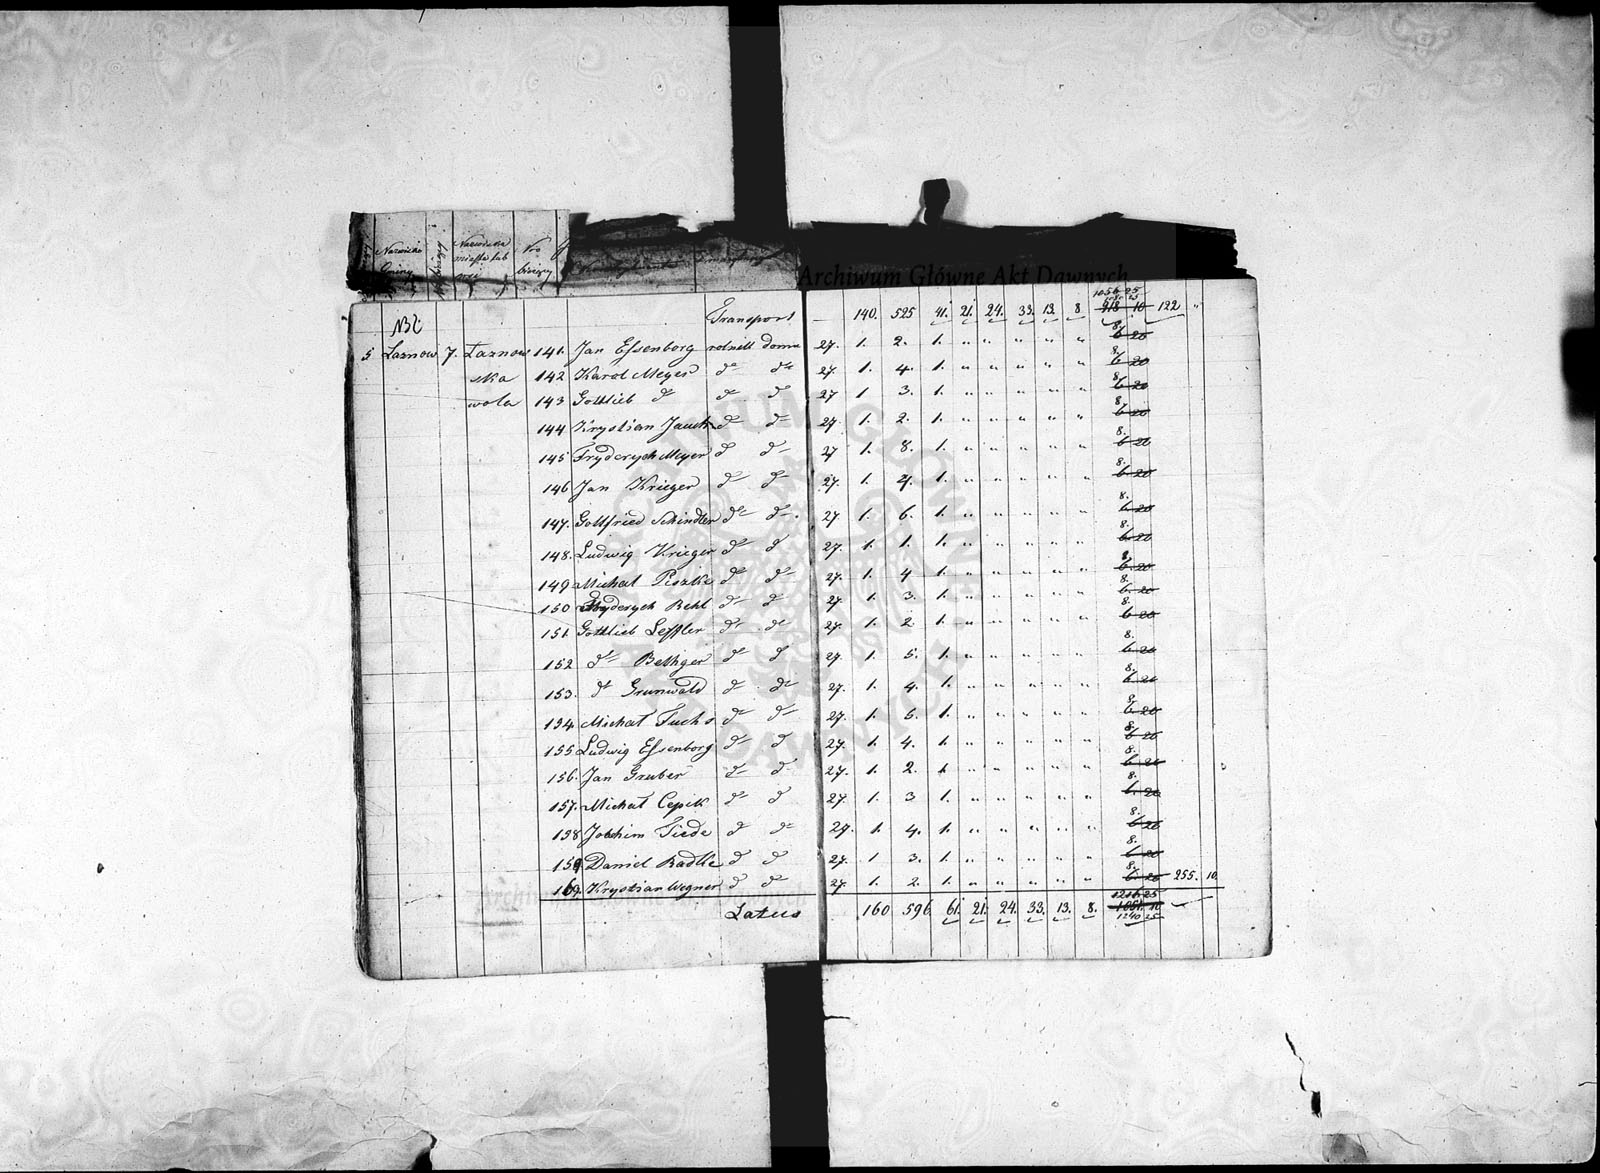 Nazwisko Gminy
Nazwisko miasta lub wsi
Nro bieżący
Archiwum Główne Akt Dawnych
Transport — 140. 525 41. 21. 24. 33. 13. 8 1056 25 918 10 122 "
5 Łaznow 7. Łaznow 141. Jan Essenborg rolnik doma 27. 1. 2. 1. " " " " " 8. 6 20
ska 142 Karol Meyer do do 27. 1. 4. 1. " " " " " 8. 6 20
wola 143 Gottlieb do do do 27 1 3. 1. " " " " " 8. 6 20
144 Krystian Jauch do do 27. 1. 2. 1. " " " " " 8. 6 20
145 Fryderych Meyer do do 27 1. 8. 1. " " " " " 8. 6 20
146 Jan Krieger do do 27. 1. 4. 1. " " " " " 8. 6 20
147. Gottfried Schindler do do 27 1. 6. 1. " " " " " 8. 6 20
148. Ludwig Krieger do do 27. 1. 1. 1. " " " " " 8. 6 20
149 Michał Peszke do do 27. 1. 4 1. " " " " " 8. 6 20
150 Fryderych Behl do do 27. 1. 3. 1. " " " " " 8. 6 20
151. Gottlieb Leffler do do 27. 1. 2 1. " " " " " 8. 6 20
152 do Bethger do do 27. 1. 5. 1. " " " " " 8. 6 20
153. do Grunwald do do 27. 1. 4. 1. " " " " " 8. 6 20
154. Michał Fuchs do do 27. 1. 6. 1. " " " " " 8. 6 20
155 Ludwig Essenborg do do 27. 1. 4. 1. " " " " " 8. 6 20
156. Jan Gruber do do 27. 1. 2. 1 " " " " " 8. 6 20
157. Michał Cepik do do 27. 1. 3 1. " " " " " 8. 6 20
158 Jochim Tiede do do 27. 1. 4. 1. " " " " " 8. 6 20
159 Daniel Radtke do do 27. 1 3. 1. " " " " " 8. 6 20
160. Krystian Wegner do do 27. 1. 2. 1. " " " " " 8. 6 20 255. 10
Latus 160 596 61. 21. 24. 33. 13. 8. 1216 25 1051 10 1240 25
Archiwum Główne Akt Dawnych